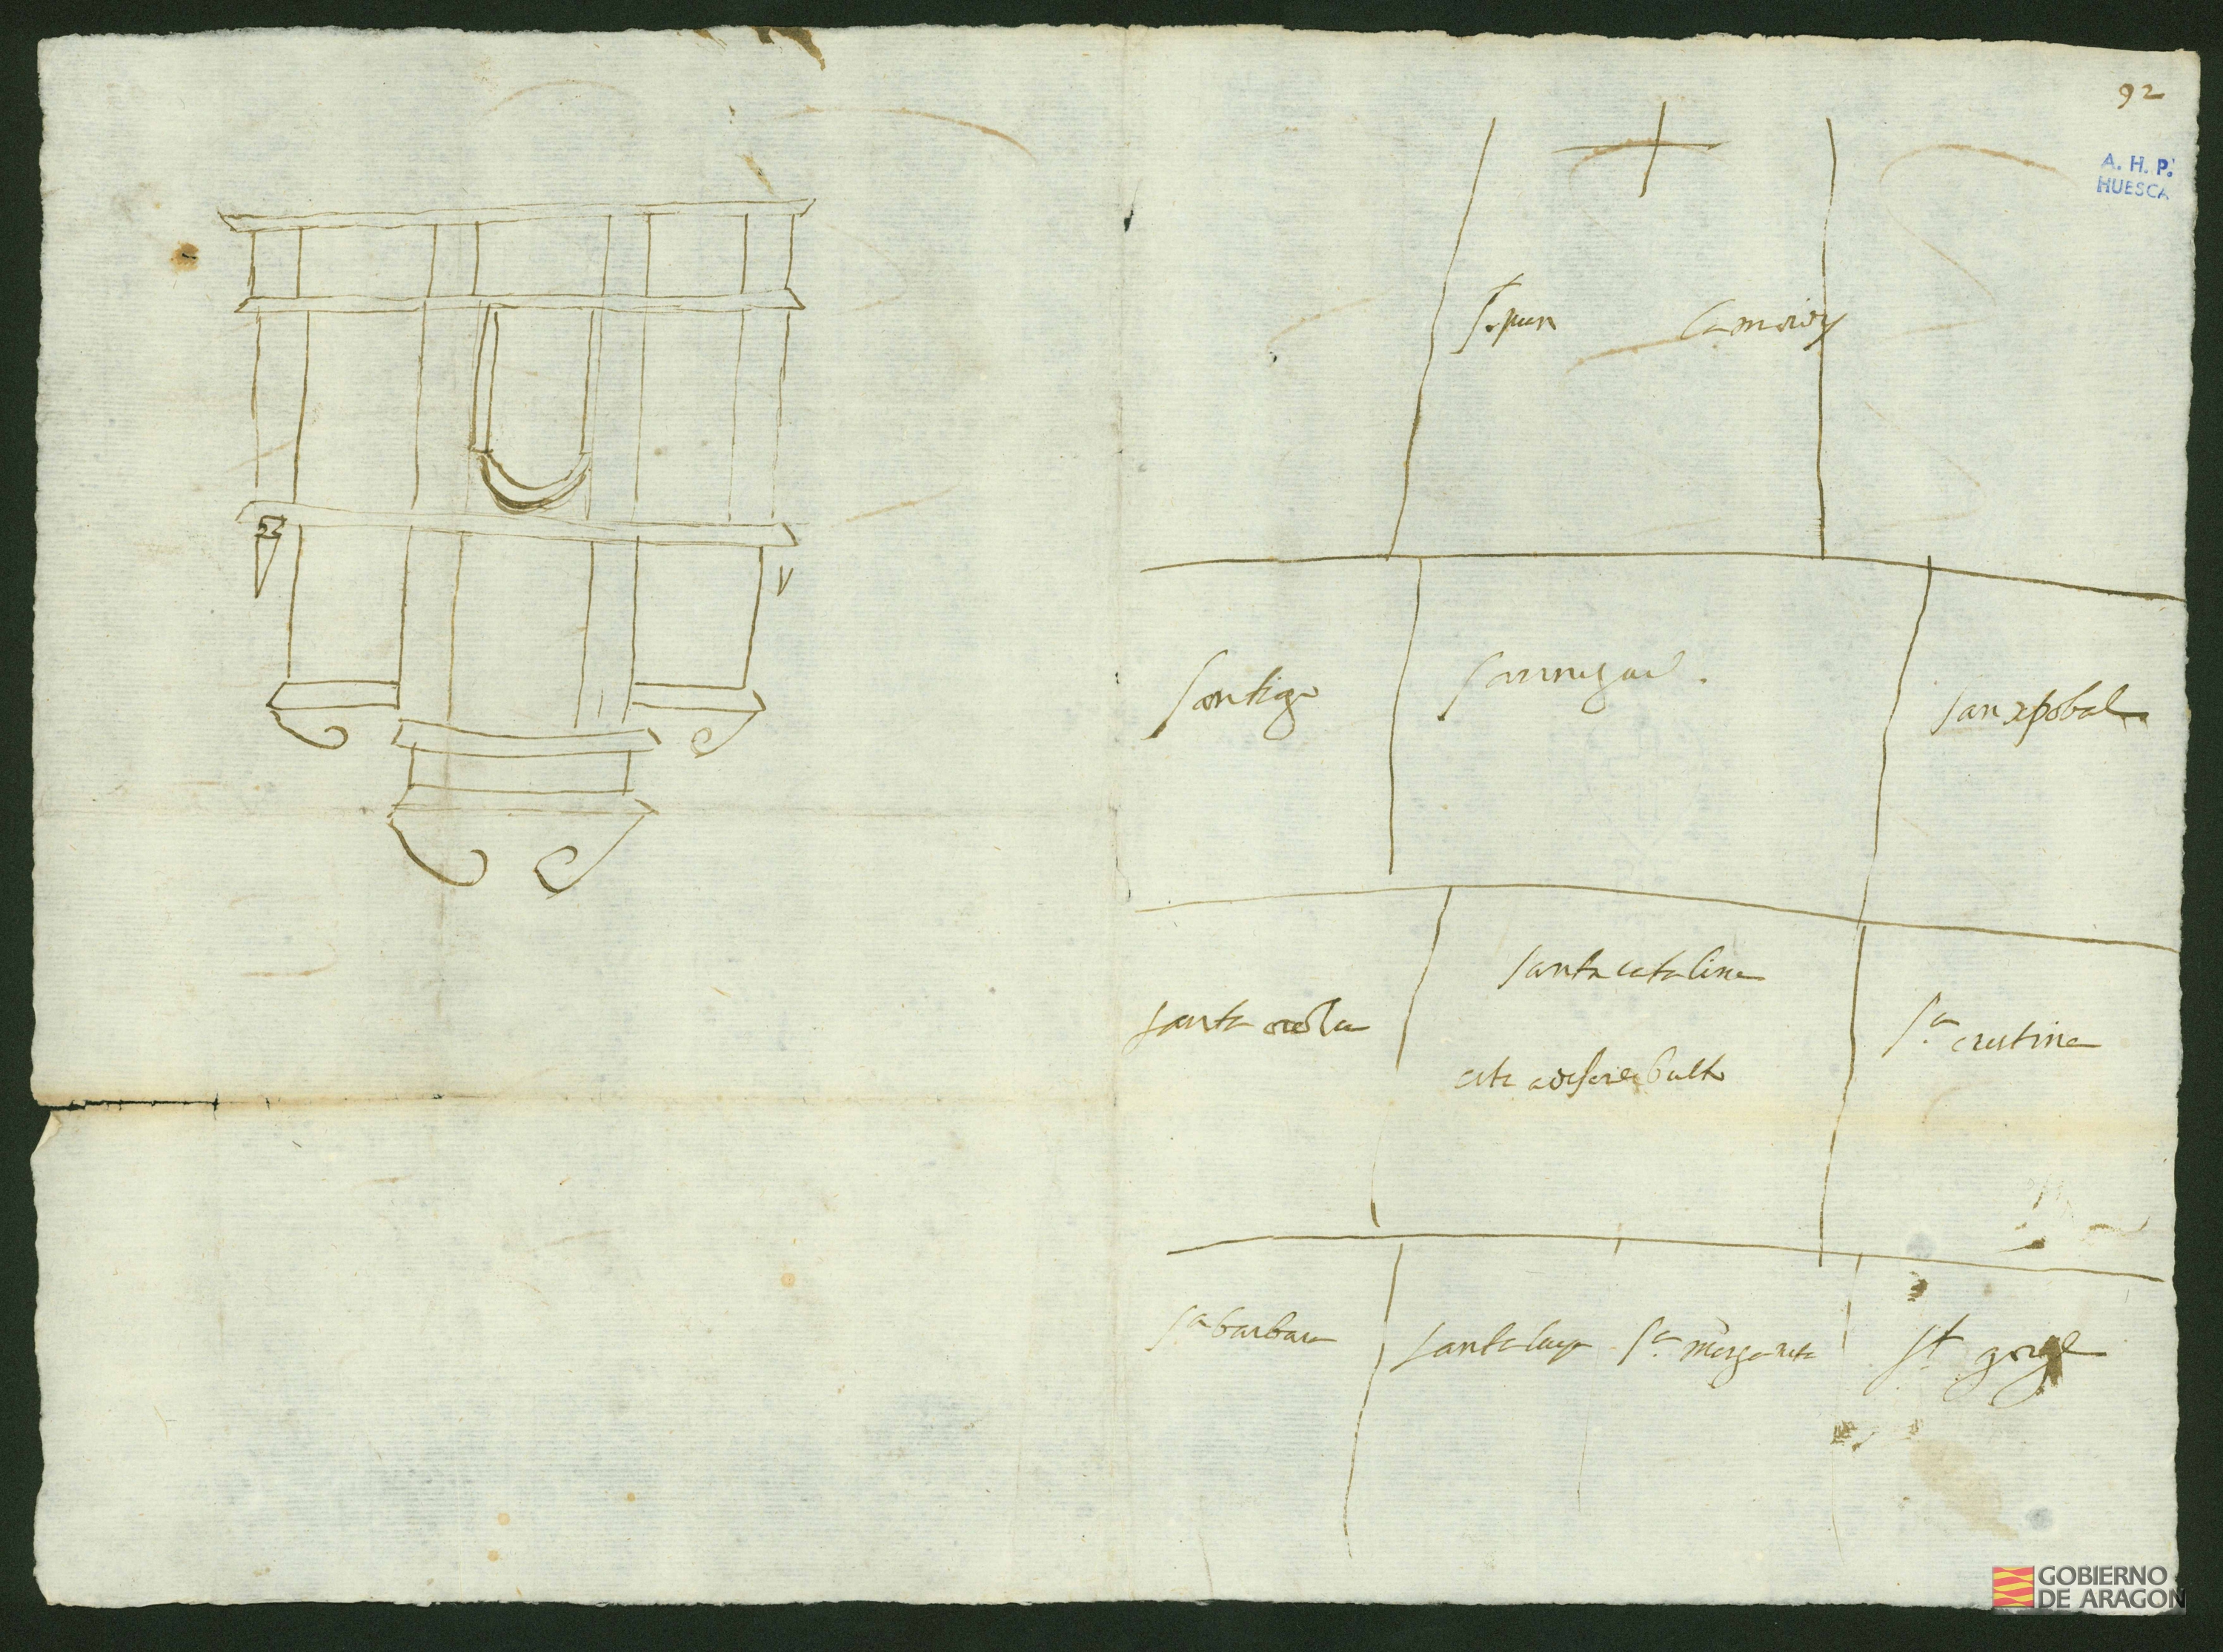 92
A. H. P.
HUESCA
St jua
la maria
santiago
san miguel.
san xpobal
santa catalina
santa
esta a de ser de bulto
sa cristina
sa barbara
santa lucia
sa margarita
st gorge
GOBIERNO
DE ARAGON